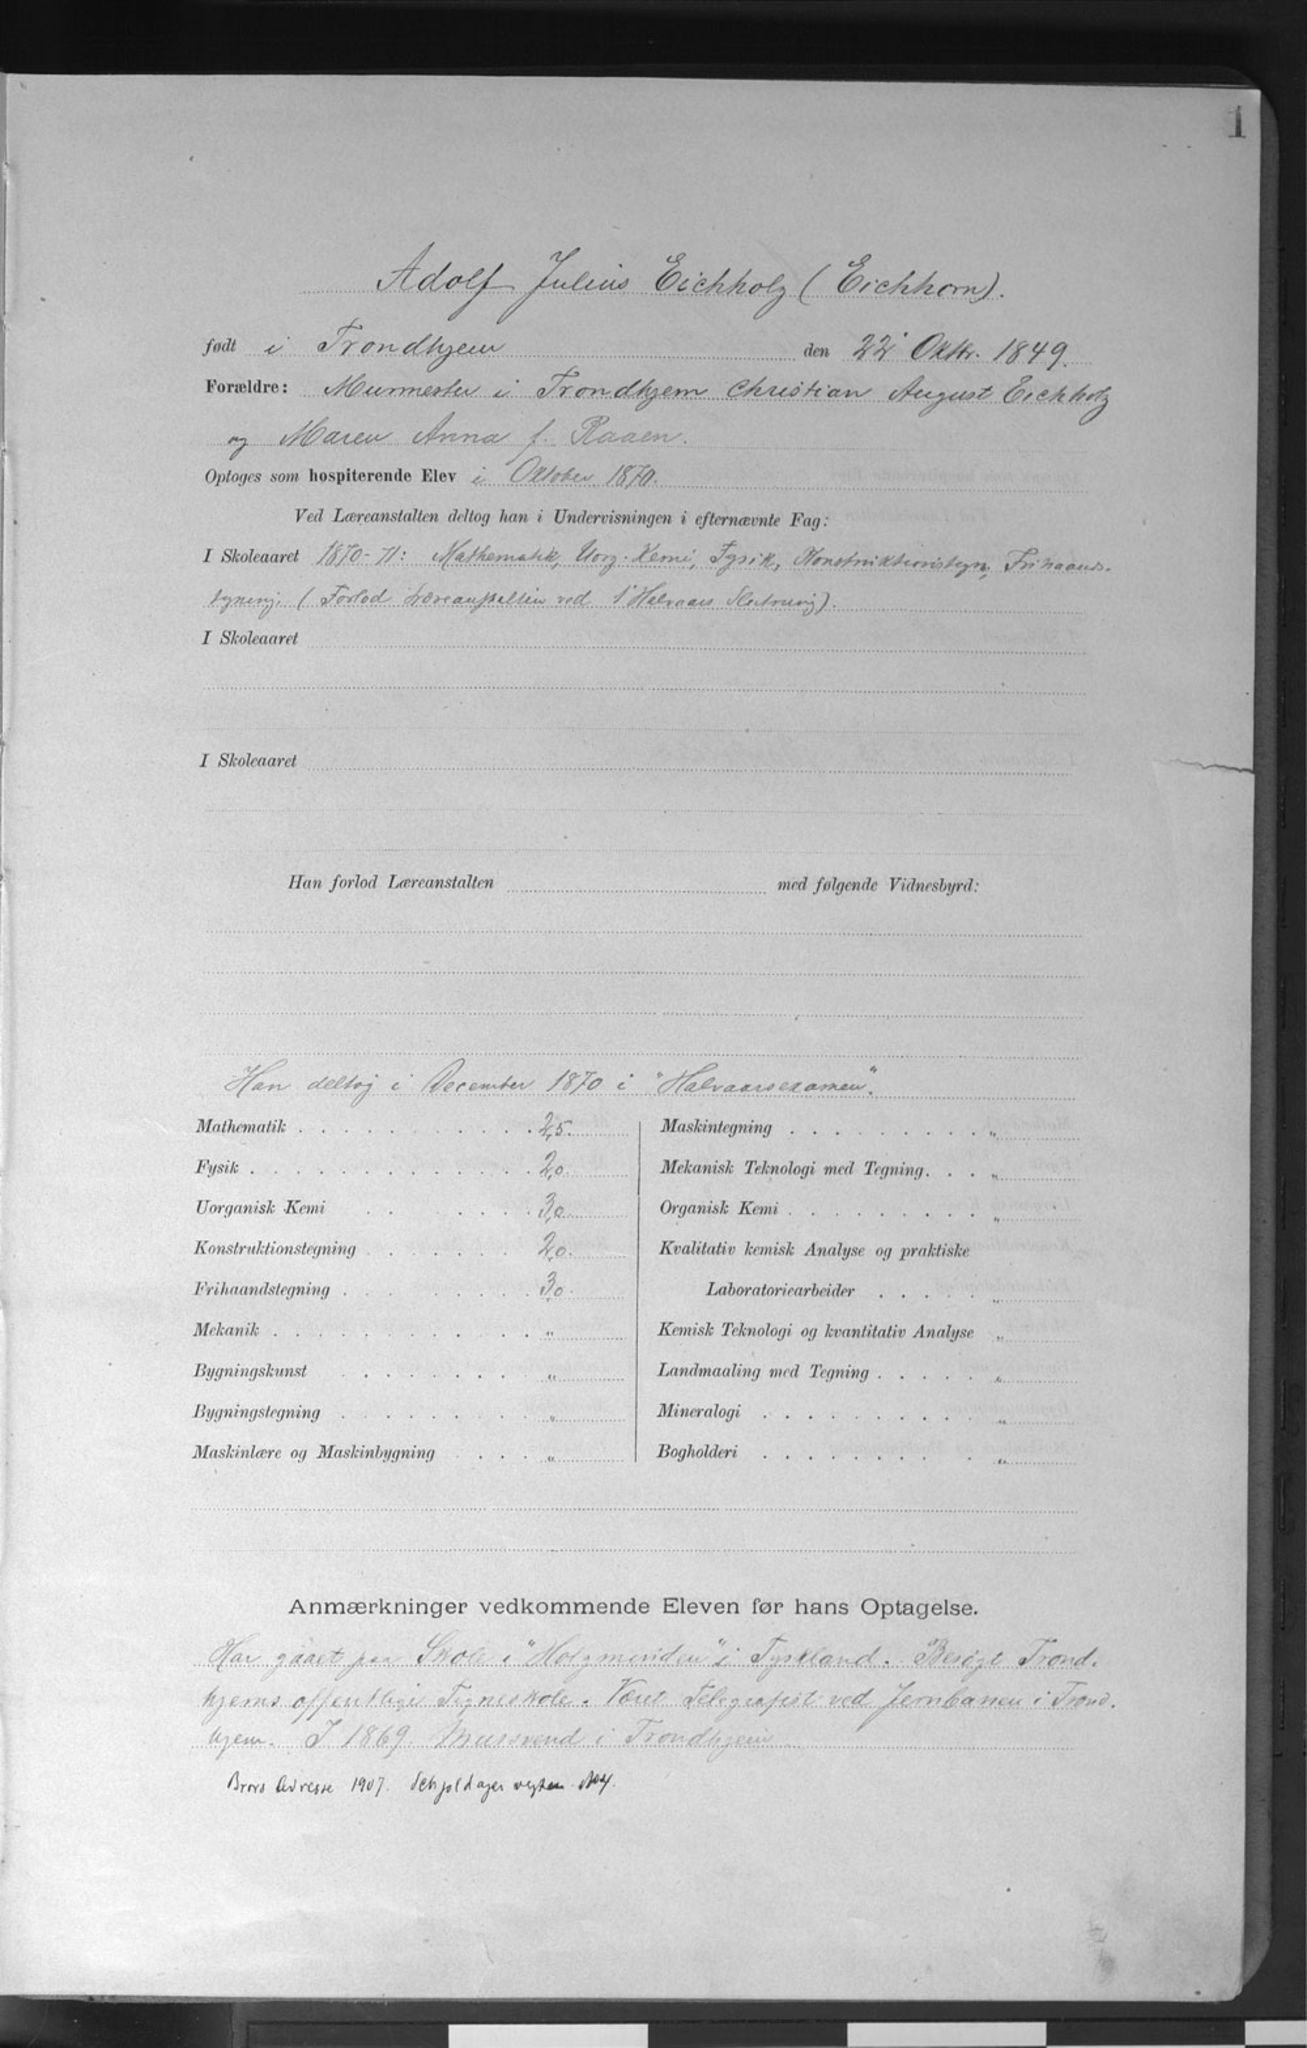 1
Adolf Julius Eichholz (Eichhorn).
født i Trondhjem den 22 Oktbr. 1849.
Forældre: Murmester i Trondhjem Christian August Eichholz
og Maren Anna f. Raaen.
Optoges som hospiterende Elev i Oktober 1870.
Ved Læreanstalten deltog han i Undervisningen i efternævnte Fag:
I Skoleaaret 1870-71: Mathematik, Uorg. Kemi, Fysik, Konstruktionstegn, Frihaands-
tegning. (Forlod Læreanstalten ved 1' Halvaars Slutning).
I Skoleaaret
I Skoleaaret
Han forlod Læreanstalten med følgende Vidnesbyrd:
Han deltog i December 1870 i "Halvaarsexamen".
Mathematik 2,5.
Fysik 2,0.
Uorganisk Kemi 3,0
Konstruktionstegning 2,0.
Frihaandstegning 3,0.
Mekanik "
Bygningskunst "
Bygningstegning "
Maskinlære og Maskinbygning "
Maskintegning "
Mekanisk Teknologi med Tegning "
Organisk Kemi "
Kvalitativ kemisk Analyse og praktiske
Laboratoriearbeider "
Kemisk Teknologi og kvantitativ Analyse "
Landmaaling med Tegning "
Mineralogi "
Bogholderi "
Anmærkninger vedkommende Eleven før hans Optagelse.
Har gaaet paa Skole i "Holzminden" i Tyskland. Besøgt Trond-
hjems offentlige Tegneskole. Været Telegrafist ved Jernbanen i Trond-
hjem. I 1869 Mursvend i Trondhjem
Brors Adresse 1907.